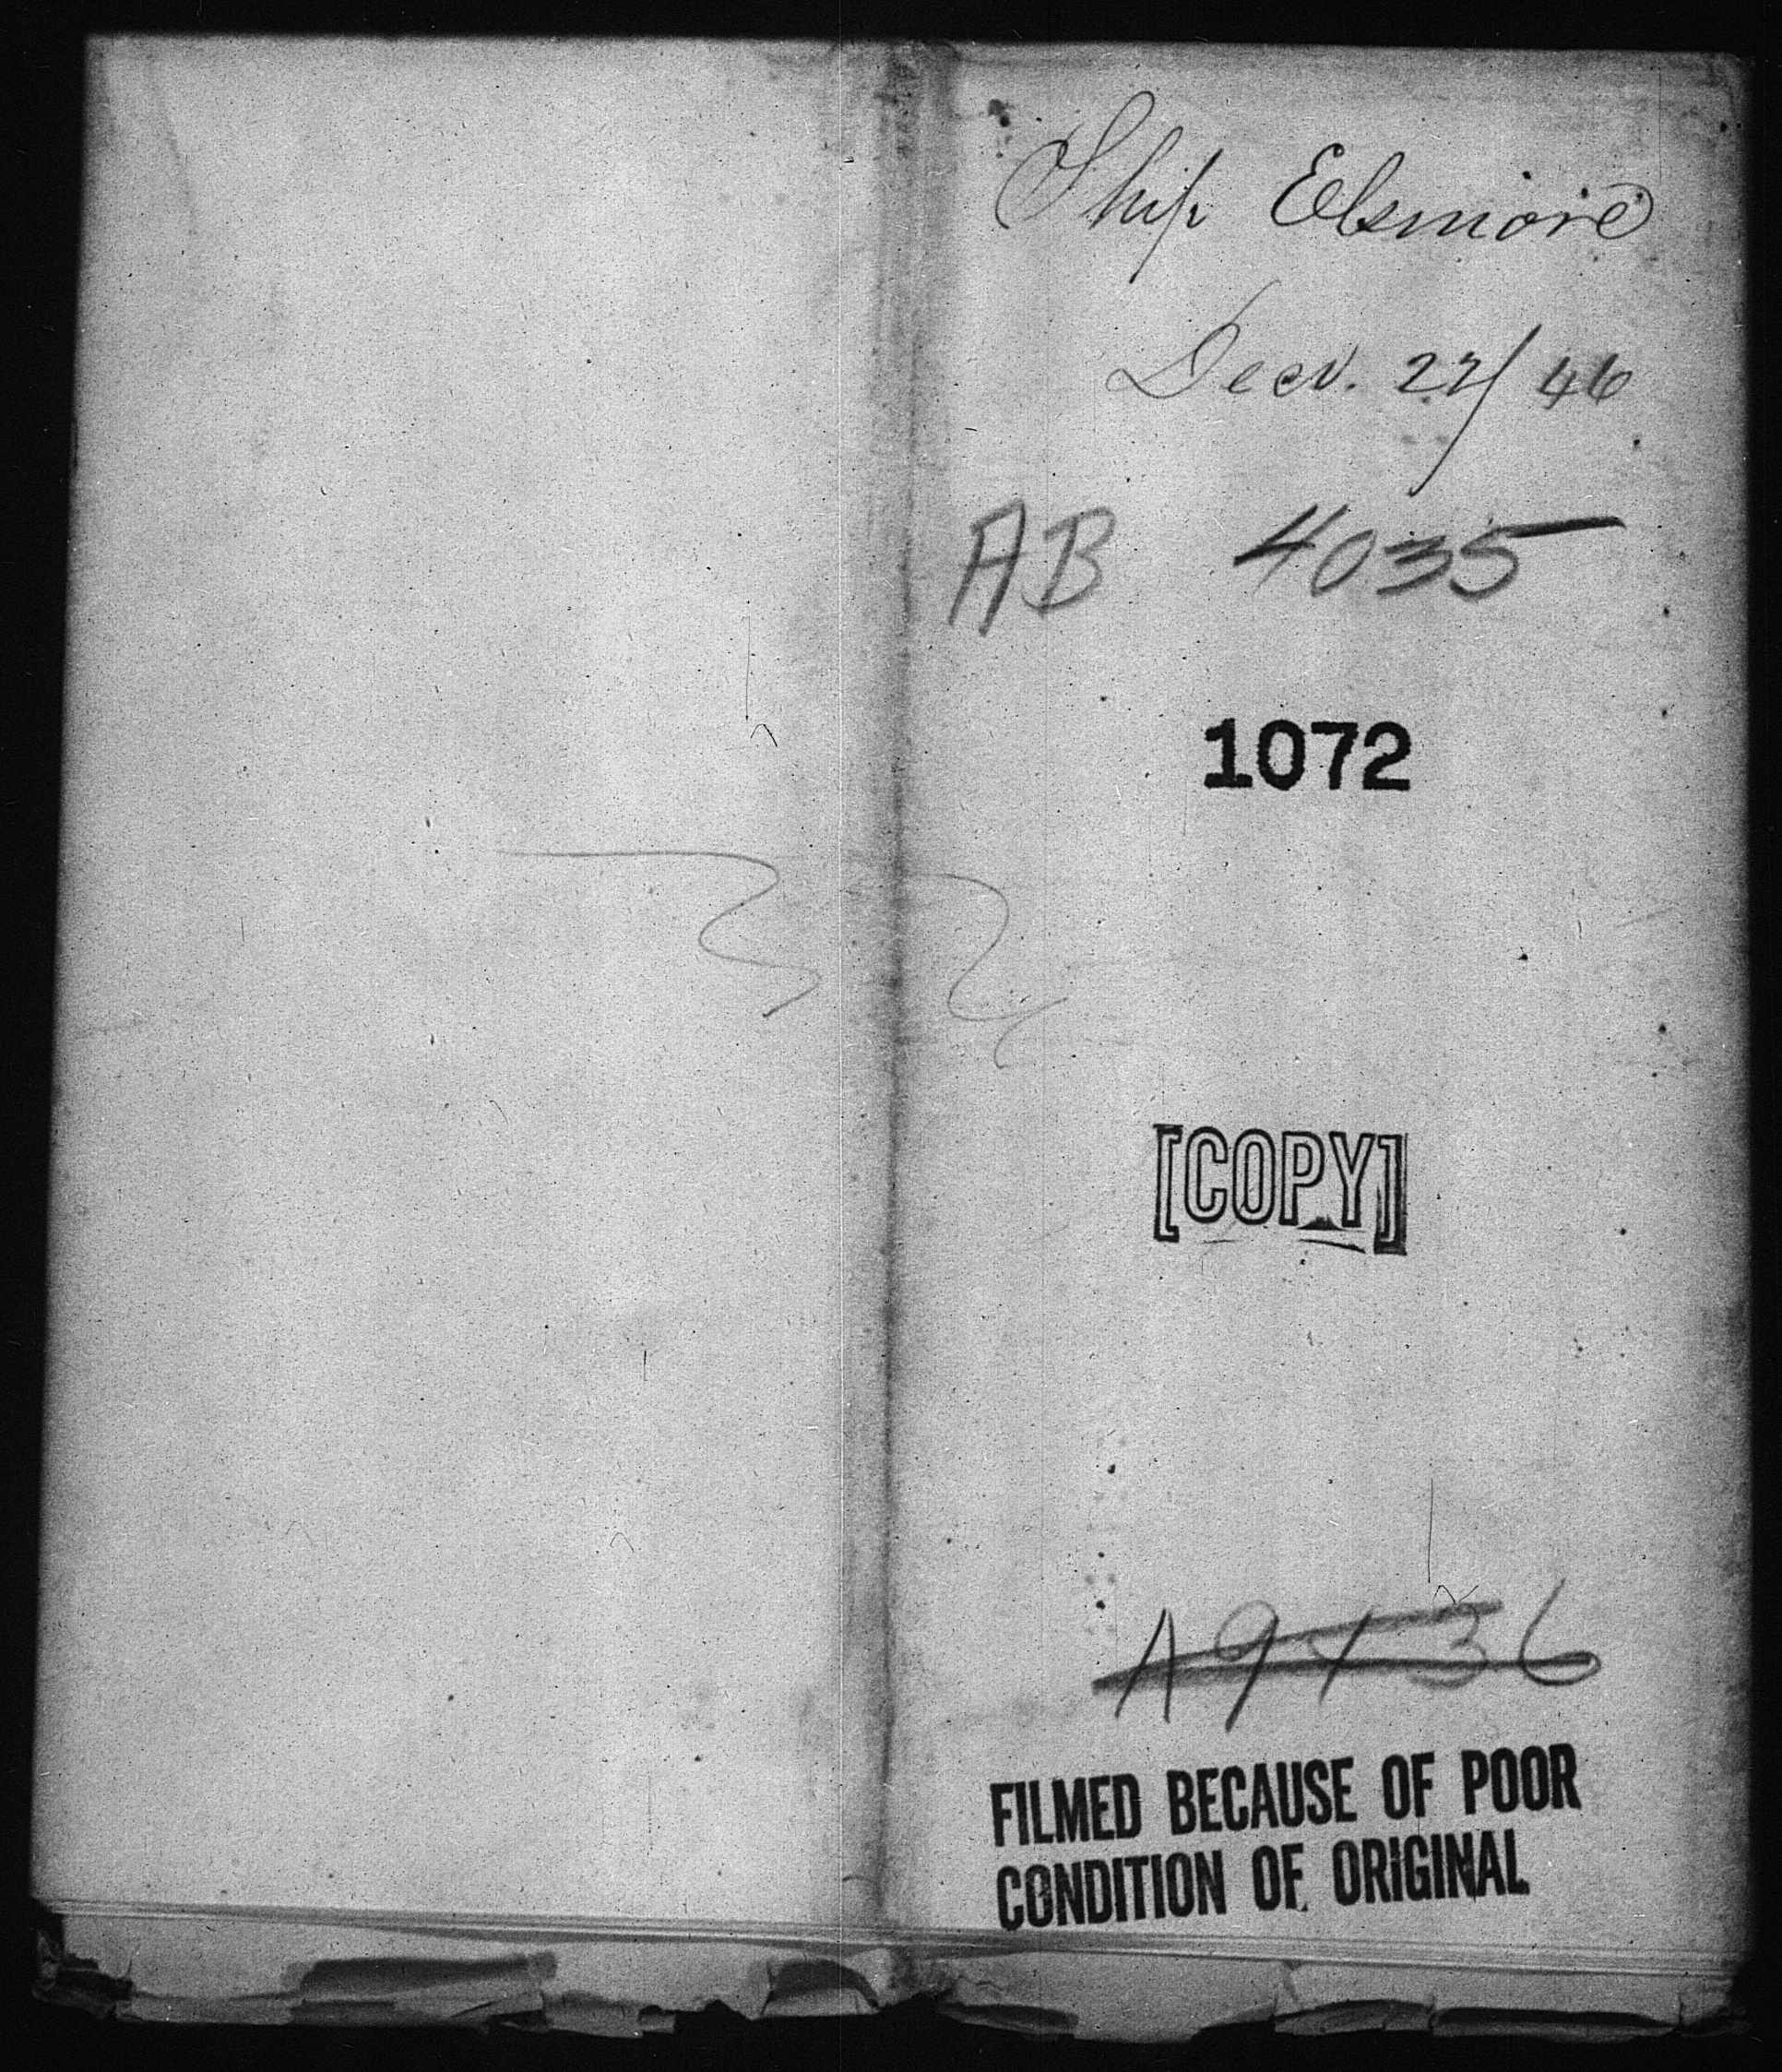 Ship Elsmore
Decr. 22/46
AB 4035
1072
[COPY]
A9436
FILMED BECAUSE OF POOR
CONDITION OF ORIGINAL